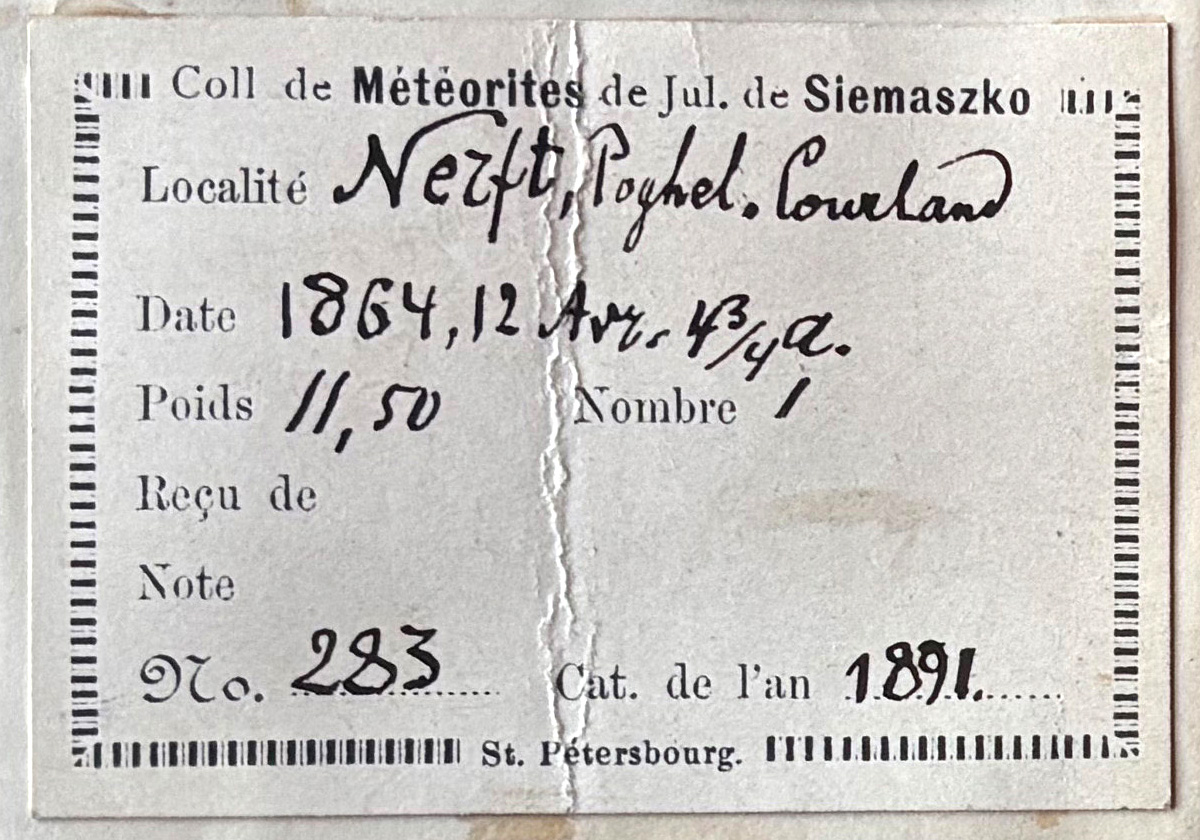 Coll de Météorites de Jul. de Siemaszko
Localité Nerft, Poghel. Courland
Date 1864, 12 Avr. 4 3/4 a.
Poids 11,50 Nombre 1
Reçu de
Note
No. 283 Cat. de l'an 1891.
St. Pétersbourg.